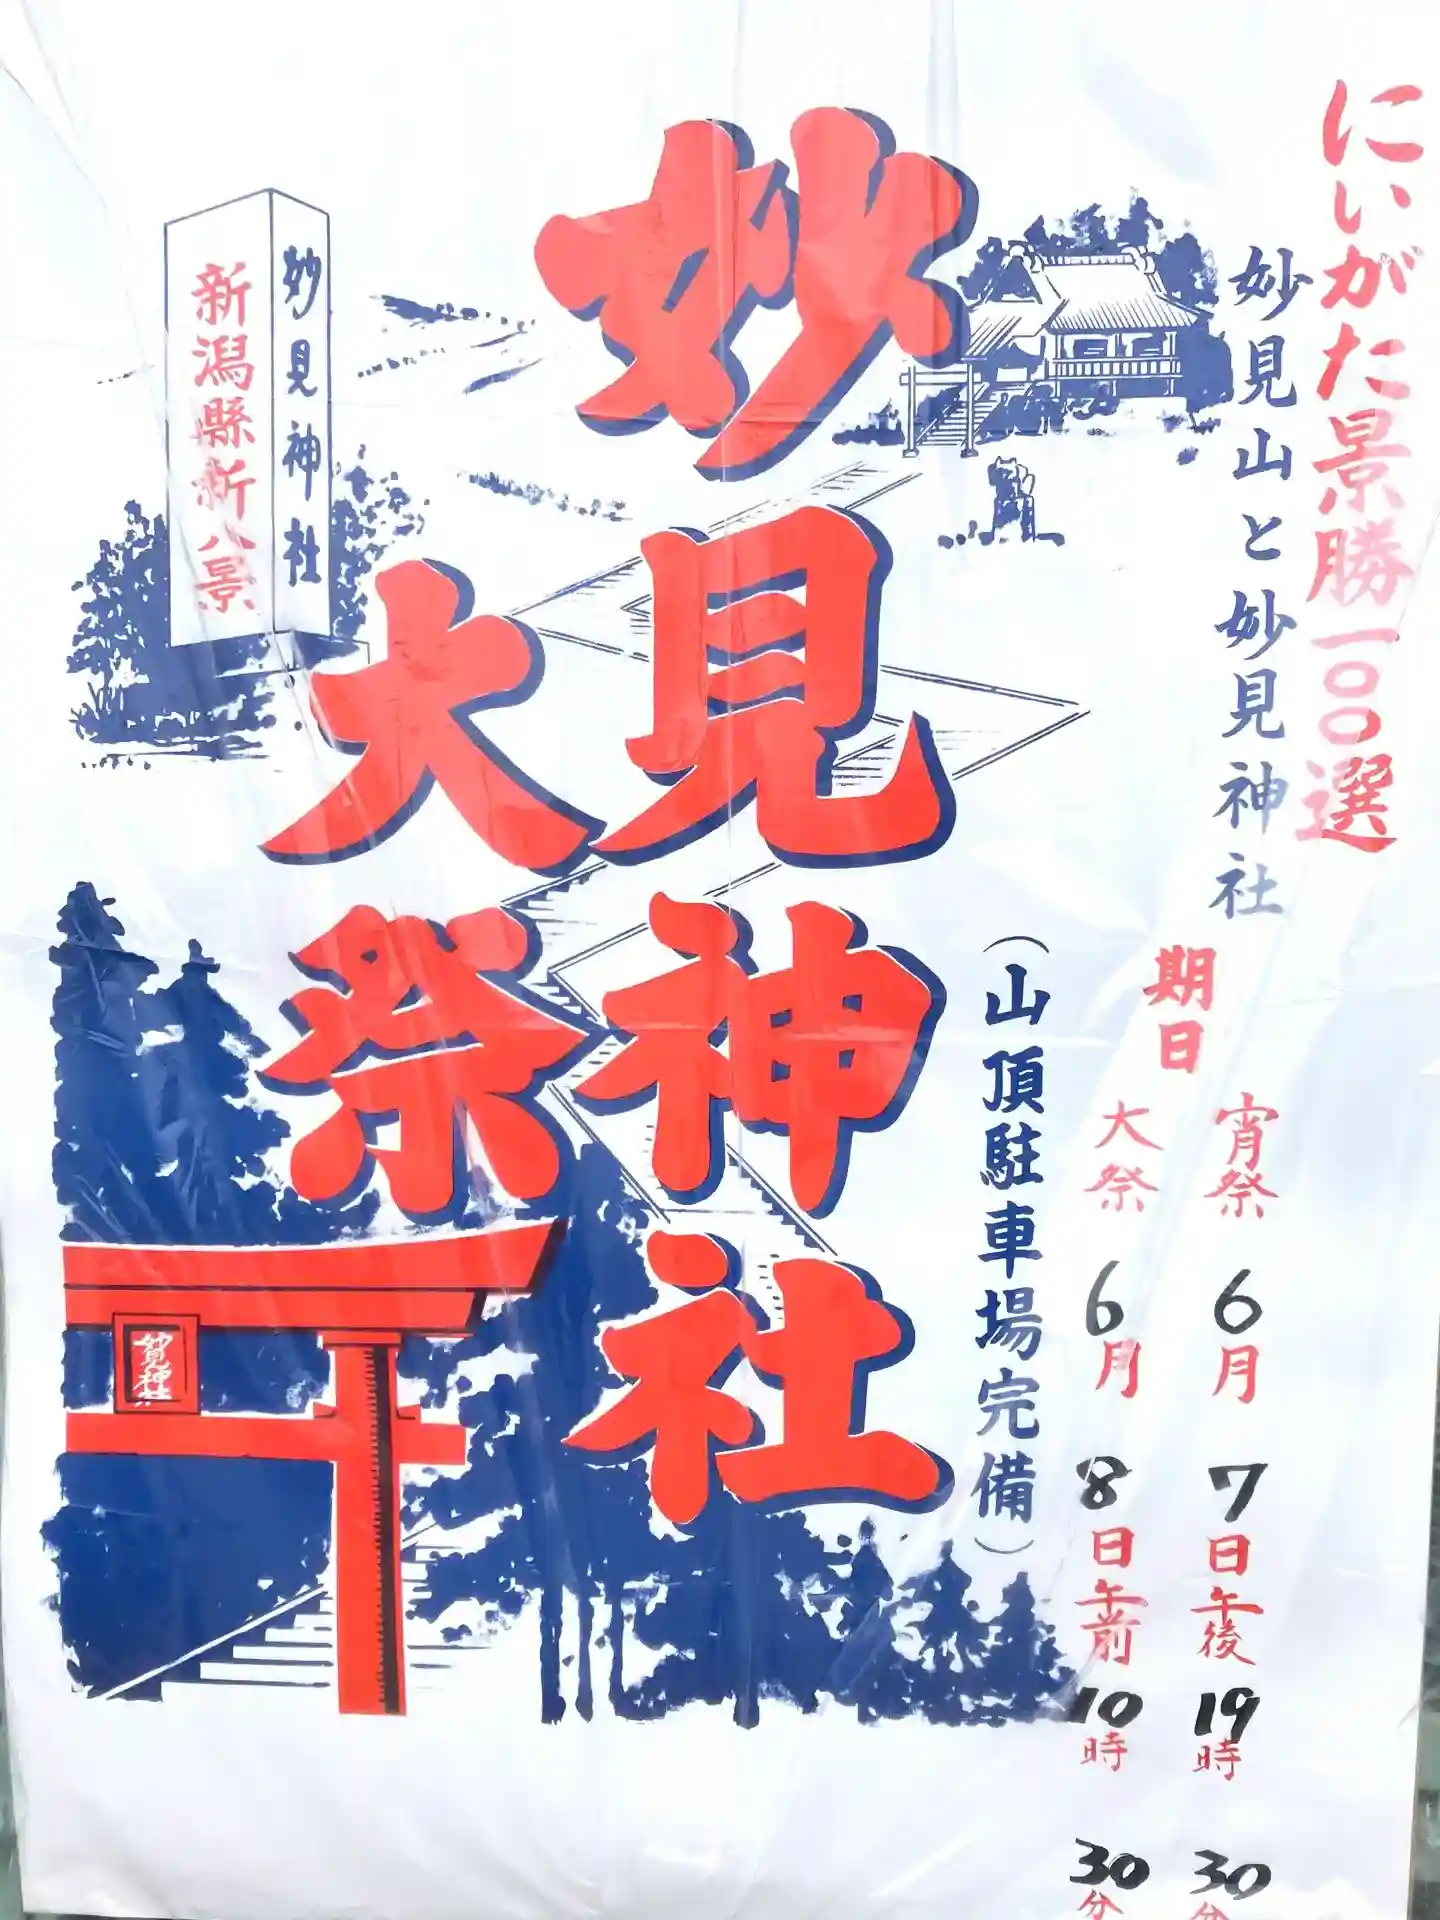 にいがた景勝一〇〇選
妙見山と妙見神社
期日
宵祭 6月7日午後19時30分
大祭 6月8日午前10時30分
(山頂駐車場完備)
妙見神社
大祭
妙見神社
新潟縣新八景